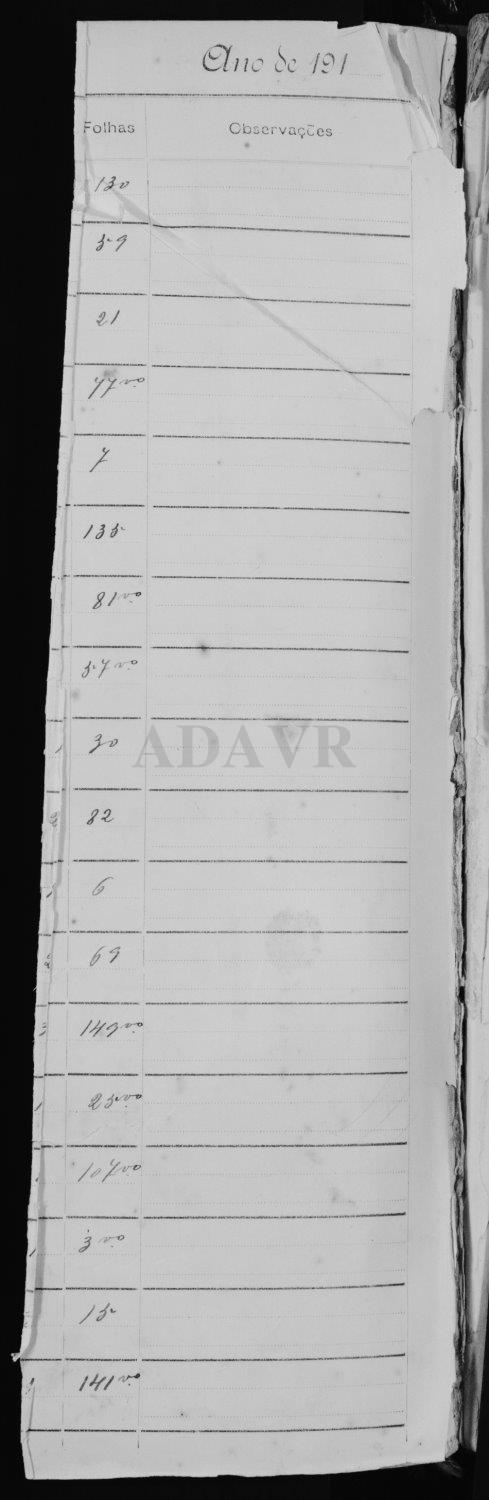 Ano de 191
Folhas Observações
130
59
21
77 vo
7
135
81 vo
57 vo
30
ADAVR
82
6
69
149 vo
25 vo
107 vo
3 vo
15
141 vo